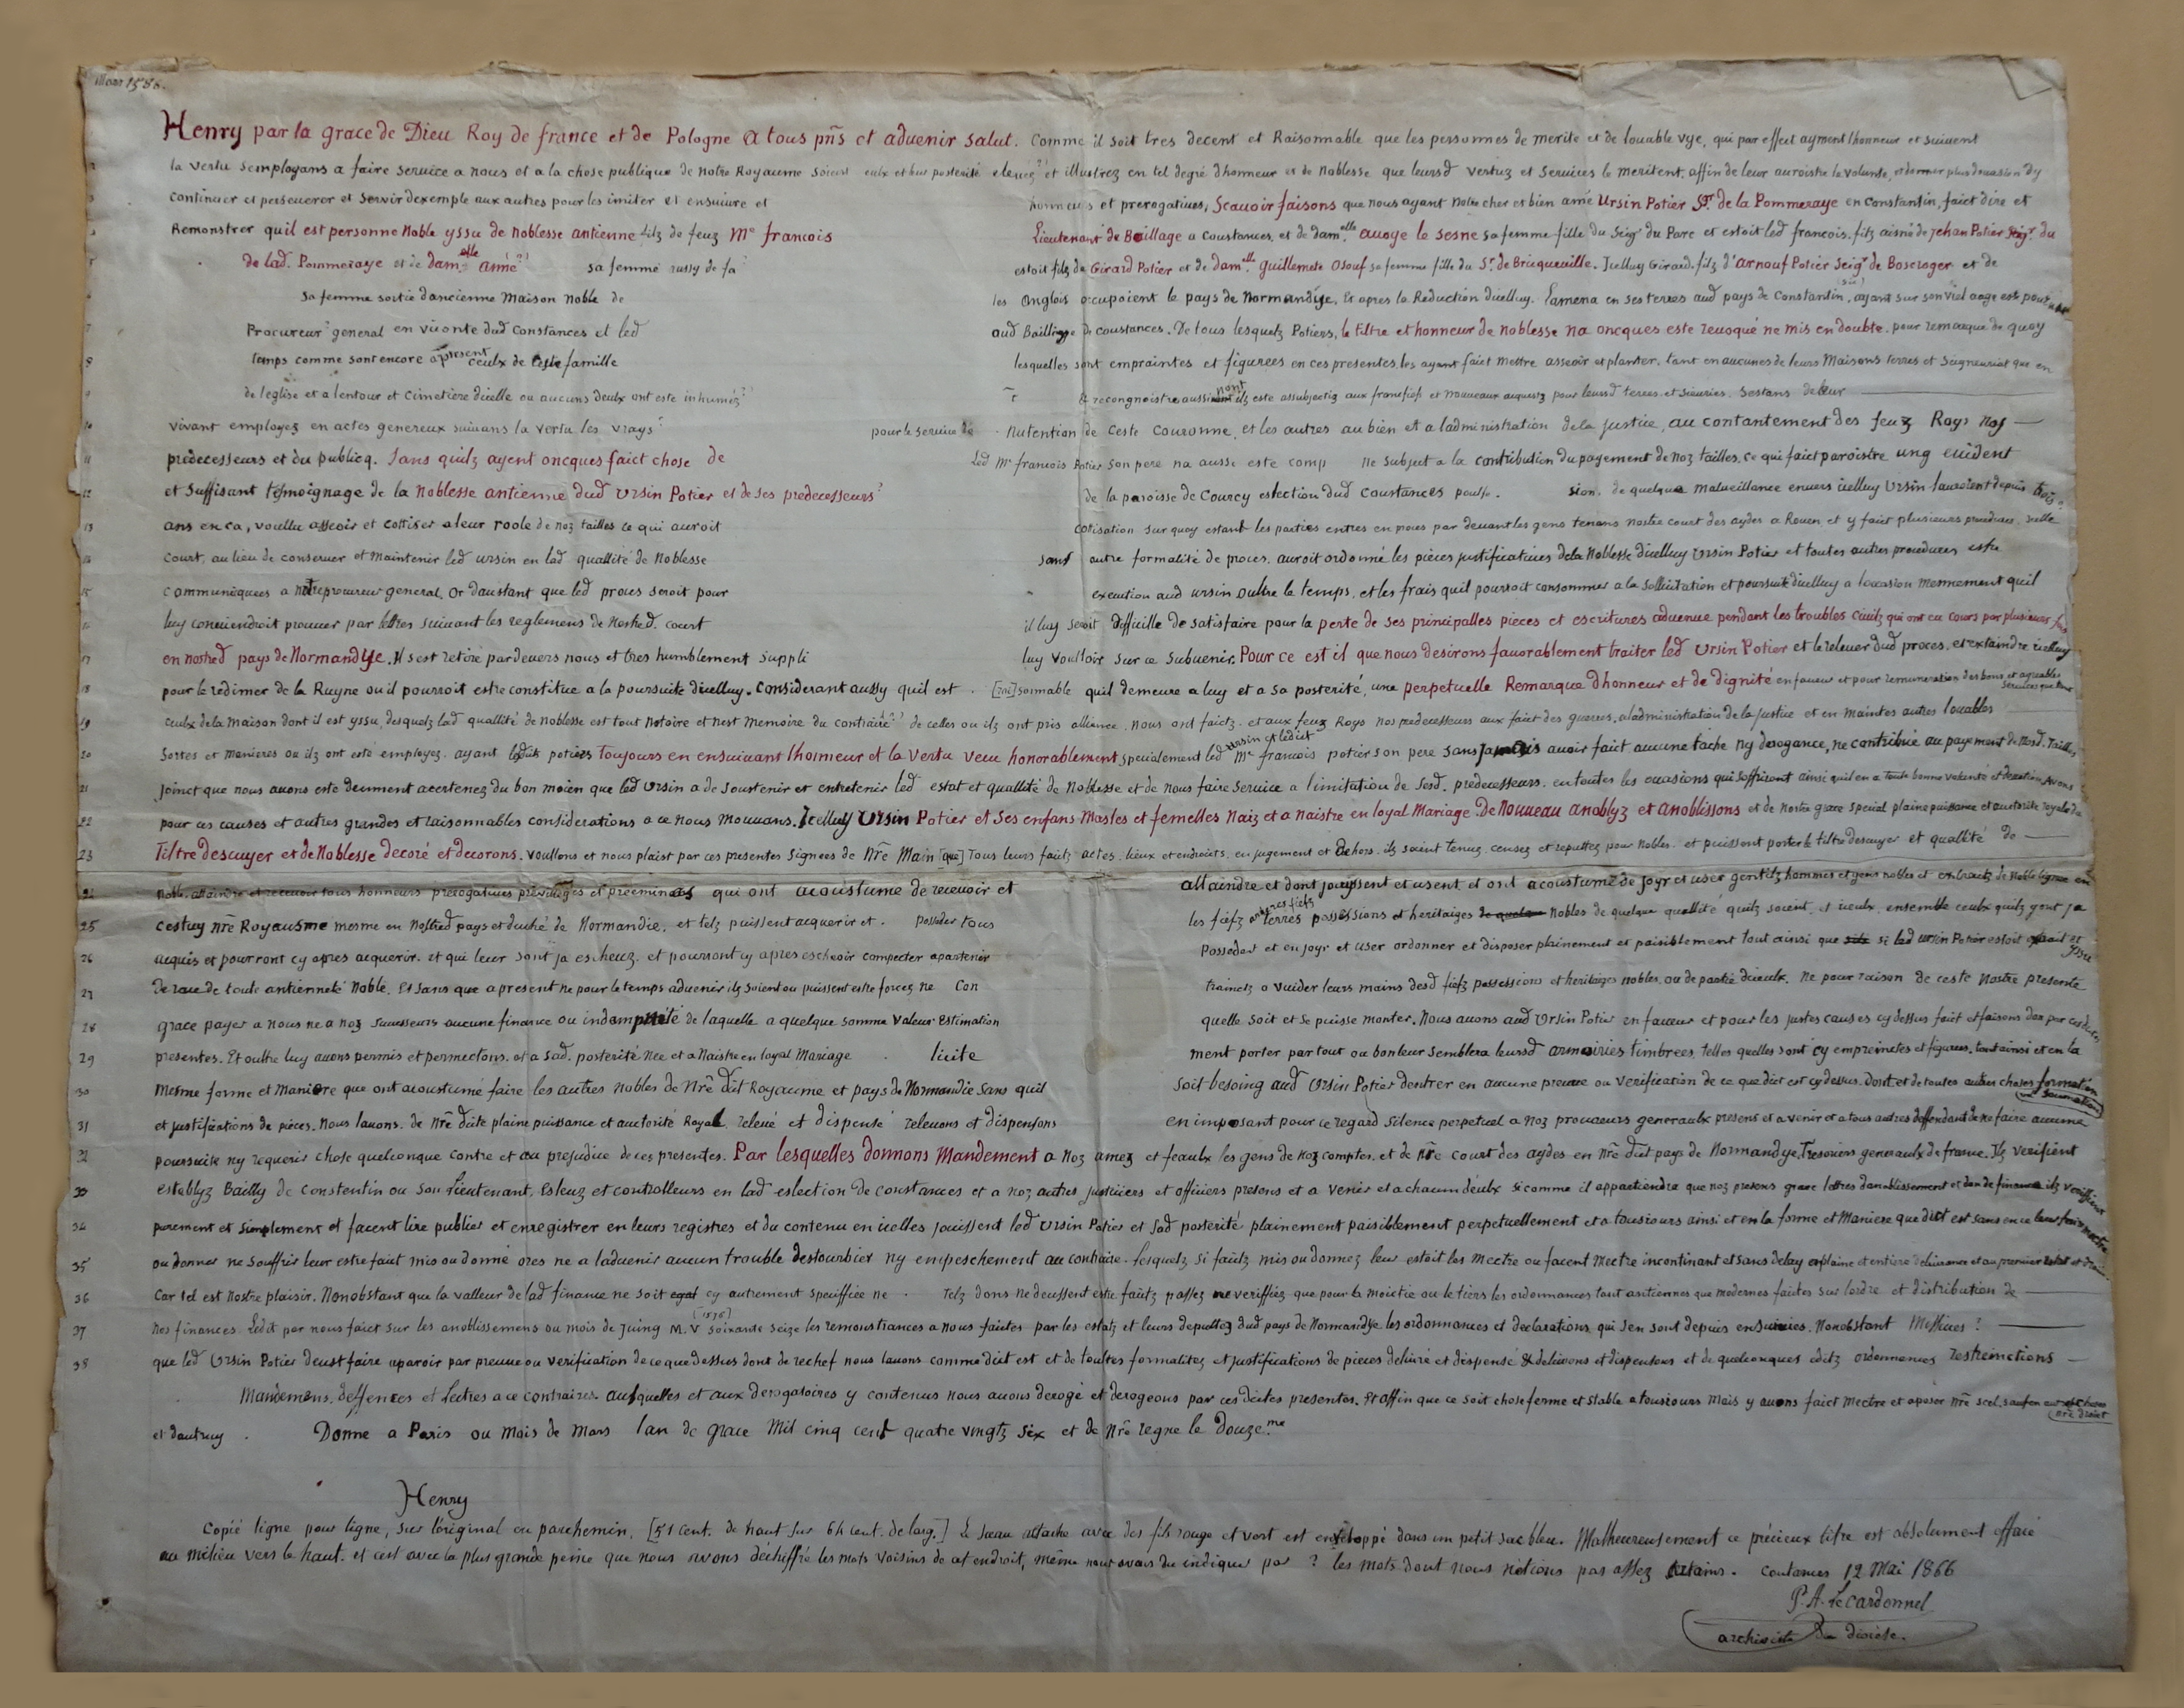 Mars 1586.
Henry par la grace de Dieu Roy de france et de Pologne A tous pn̄s et aduenir salut. Comme il soit tres decent et Raisonnable que les personnes de merite et de louable vye, qui par effect ayment lhonneur et suiuent
2 la vertu semployans a faire seruice a nous et a la chose publique de notre Royaume soient eulx et leur posterité eleuez? et illustrez en tel degré dhonneur et de Noblesse que leursd vertuz et seruices le meritent. affin de leur auroistre la volunte, et donner plus doccasion dy
3 continuer et perseuerer et seruir dexemple aux autres pour les imiter et ensuiure et honneurs et prerogatiues, Scauoir faisons que nous ayant notre cher et bien amé Ursin Potier Sr. de la Pommeraye en Constantin, faict dire et
Remonstrer quil est personne Noble yssu de noblesse antienne filz de feuz Me francois Lieutenant de Baillage a Coustances, et de damelle auoye le sesne sa femme fille du Seigr du Parc et estoit led francois. filz aisné de Jehan Potier Seigr. du
5 de lad. Pommeraye et de damelle anne?? sa femme aussy de fa? estoit filz de Girard Potier et de damelle Guillemete Osouf sa femme fille du Sr. de Bricqueuille. Icelluy Girard. filz d'arnouf Potier Seigr de Boscroger et de
6 sa femme sortie dancienne Maison noble de les Anglois occupoient le pays de Normandye, Et apres la Reduction dicelluy. Lamena en ses terres aud pays de Constantin, ayant sur son viel aage esté
7 Procureur? general en viconte dud Constances et led aud Bailliage de coustances. De tous lesquelz Potiers, le tiltre et honneur de noblesse na oncques este reuoqué ne mis en doubte. pour remarque de quoy
8 temps comme sont encore apresent ceulx de Ceste famille lesquelles sont empraintes et figurees en ces presentes, les ayant faict mettre asseoir et planter, tant en aucunes de leurs Maisons terres et Seigneuries que en
9 de leglise et a lentour et Cimetiere dicelle ou aucuns deulx ont este inhumez?? & recongnoistre aussi nont ilz este assubjectiz aux francfiefs et nouueaux acquestz pour leursd terres et sieuries. Sestans de leur
10 vivant employez en actes genereux suiuans la vertu les vrays? pour le seruice de - nutention de Ceste Couronne, et les autres au bien et a ladministration de la justice, au contantement des feuz Roys Noz
11 predecesseurs et du publicq. Sans quilz ayent oncques faict chose de Led Me francois Potier son pere na ausse este comp ne subject a la contribution du payement de noz tailles, ce qui faict paroistre ung euident
12 et suffisant tesmoignage de la Noblesse antienne dud Ursin Potier et de ses predecesseurs? de la paroisse de Courcy eslection dud Coustances poulse. sion. de quelque malueillance enuers icelluy Ursin lauroient depuis trois
13 ans en ca, voullu asseoir et cottiser a leur roole de noz tailles ce qui auroit cotisation sur quoy estant les parties entres en proces par deuant les gens tenans nostre court des aydes a Rouen et y faict plusieurs procedures icelle
14 court, au lieu de conseruer et maintenir led ursin en lad quallité de Noblesse sans autre formalité de proces. auroit ordonné les pieces justificatiues de la Noblesse dicelluy Ursin Potier et toutes autres procedures estre
15 communiquees a notre procureur general. Or daustant que led proces seroit pour execution aud ursin oultre le temps, et les frais quil pourroit consommer a la sollicitation et poursuite dicelluy a loccasion mesmement quil
16 luy conuiendroit prouuer par lettres suiuant les reglemens de nostred. court il luy seroit difficille de satisfaire pour la perte de ses principalles pieces et escritures aduenue pendant les troubles ciuilz qui ont eu cours par plusieurs fois
17 en nostred pays de Normandye. Il sest retiré pardeuers nous et tres humblement suppli luy voulloir sur ce subuenir. Pour ce est il que nous desirons fauorablement traiter led Ursin Potier et le releuer dud proces. et extaindre icelluy
18 pour le redimer de la Ruyne ou il pourroit estre constitue a la poursuite dicelluy. Considerant aussy quil est . [rai]sonnable quil demeure a luy et a sa posterité, une perpetuelle Remarque dhonneur et de dignité en faueur et pour remuneration des bons et agreables seruices que tous
19 ceulx de la Maison dont il est yssu, desquelz lad quallité de noblesse est tout notoire et nest memoire du contraire?? de celles ou ilz ont pris alliance. nous ont faictz. et aux feuz Roys nos predecesseurs aux faict des guerres. a ladministration de la justice et en maintes autres louables
20 Sortes et manieres ou ilz ont esté employez. ayant lesdits potiers Toujours en ensuiuant lhonneur et la vertu vecu honorablement, specialement led ursin et ledict Me francois potier son pere sans jamais auoir faict aucune tache ny derogance, ne contribué au payement de nosd. Tailles
21 Joinct que nous auons este deument acertenez du bon moien que led Ursin a de soustenir et entretenir led estat et quallité de Noblesse et de nous faire seruice a limitation de sesd. predecesseurs. en toutes les occasions qui soffriront ainsi quil en a toute bonne volunté et deuotion Auons
22 pour ces causes et autres grandes et raisonnables considerations a ce nous mouuans. Icelluy Ursin Potier et ses enfans Masles et femelles Naiz et a naistre en loyal Mariage. De nouueau anoblyz et anoblissons et de nostre grace special plaine puissance et auctorite royale de
23 Tiltre descuyer et de Noblesse decoré et decorons. voullons et nous plaist par ces presentes signees de nr̄e Main [que] Tous leurs faictz actes. lieux et endroits. en jugement et dehors. ilz soient tenuz. censez et reputtez pour Nobles. et puissent porter le tiltre descuyer et quallité de
24 noble. attaindre et receuoir tous honneurs prerogatiues preuileges et preeminences qui ont acoustume de receuoir et attaindre et dont jouyssent et usent et ont acoustumé de joyr et user gentilz hommes et gens nobles et extraictz de Noble lignee en
25 cestuy nr̄e Royausme mesme en nostred pays et duché de Normandie. et telz puissent acquerir et . posseder tous les fiefz arrieres fiefz terres possessions et heritaiges de quelque Nobles de quelque quallité quilz soient, et iceulx. ensemble ceulx quilz y ont ja
26 acquis et pourront cy apres acquerir. et qui leur sont ja escheuz. et pourront cy apres escheoir competter apartenir Posseder et en joyr et user ordonner et disposer plainement et paisiblement tout ainsi que silz si led ursin Potier estoit extrait et yssu
27 de race de toute antienneté Noble. Et sans que a present ne pour le temps aduenir ilz soient ou puissent estre forcez ne Con trainctz a vuider leurs mains desd fiefz possessions et heritages nobles. ou de partie diceulx. Ne pour raison de ceste Nostre presente
28 grace payer a nous ne a noz successeurs aucune finance ou indempnité de laquelle a quelque somme Valeur Estimation quelle soit et se puisse monter. Nous auons aud Ursin Potier en faueur et pour les justes causes cy dessus faict et faisons don par cesdites
29 presentes. Et oultre luy auons permis et permectons. et a sad. posterité nee et a Naistre en loyal Mariage . licite ment porter par tout ou bon leur semblera leursd armoiries timbrees, telles quelles sont cy empreinctes et figurees. tout ainsi et en la
30 Mesme forme et Maniere que ont acoustumé faire les autres Nobles de Nr̄e dit Royaume et pays de Normandie sans quil soit besoing aud Ursin Potier dentrer en aucune preuue ou verification de ce que dict est cy dessus. Dont et de toutes autres choses
31 et justifications de pieces. Nous lauons. de Nr̄e dicte plaine puissance et auctorité Royal releué et dispensé releuons et dispensons en imposant pour ce regard silence perpetuel a Noz procureurs generaulx presens et a venir et a tous autres deffendant de ne faire aucune
32 poursuite ny requerir chose quelconque contre et au prejudice de ces presentes. Par lesquelles donnons Mandement a Noz amez et feaulx les gens de noz comptes. et de nr̄e court des aydes en Nr̄e dit pays de Normandye, Tresoriers generaulx de france. Ilz verifient
33 establyz Bailly de Constentin ou son Lieutenant, Esleuz et controlleurs en lad eslection de Constances et a noz autres justiciers et officiers presens et a venir et a chacun deulx sicomme il appartiendra que noz presens grace lettres danoblissement et don de finance ilz verifient
34 purement et simplement et facent lire publier et enregistrer en leurs registres et du contenu en icelles jouissent led Ursin Potier et sad posterité plainement paisiblement perpetuellement et a tousiours ainsi et en la forme et Maniere que dict est sans en ce leur faire mectre
35 ou donner ne souffrir leur estre faict mis ou donné ores ne a laduenir aucun trouble destourbier ny empeschement au contraire. Lesquelz si faictz mis ou donnez leur estoit les mectre ou facent mectre incontinant et sans delay en plaine et entiere deliurance et au premier estat et
36 Car tel est Nostre plaisir. Nonobstant que la valleur de lad finance ne soit cy autrement speciffiee ne . Telz dons ne deussent estre faictz passez ne veriffiez que pour la moictie ou le tiers les ordonnances tant antiennes que modernes faictes sur lordre et distribution de
37 nos finances. Ledit par nous faict sur les anoblissemens ou mois de juing M.V (1576) soixante seize les remonstrances a nous faictes par les estatz et leurs deputtez dud pays de Normandye. les ordonnances et declarations, qui sen sont depuis ensuiuies. Nonobstant Missiues ?
38 que led Ursin Potier deust faire aparoir par preuue ou verification de ce que dessus dont de rechef nous lauons comme dict est et de toultes formalitez et justifications de pieces deliure et dispensé & deliurons et dispensons et de quelconques edictz ordonnances restrinctions
Mandemens. deffences et lectres a ce contraires. ausquelles et aux derogatoires y contenus nous auons derogé et derogeons par ces dictes presentes. Et affin que ce soit chose ferme et stable a tousiours Mais y auons faict mectre et aposer nr̄e scel. sauf en autres choses nr̄e droict
et dautruy . Donne a Paris ou mois de Mars lan de grace Mil cinq cent quatre vingtz six et de Nr̄e regne le Douze.me
Henry
Copié ligne pour ligne, sur l'original en parchemin. [51 cent. de haut sur 64 cent. de larg.] Le sceau attaché avec des fils rouge et vert est enveloppé dans un petit sac bleu. Malheureusement ce précieux titre est absolument effacé
au milieu vers le haut. et c'est avec la plus grande peine que nous avons déchiffré les mots voisins de cet endroit, même nous avons du indiquer par ? les mots dont nous n'étions pas assez certains. Coutances 12 Mai 1866
P. A. Lecardonnel
archiviste du diocèse.